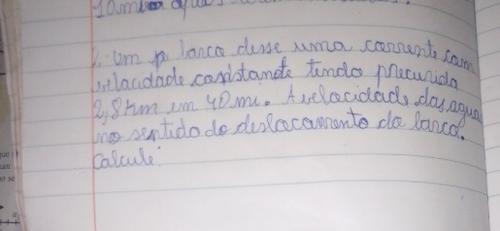 2. Um barco desse uma corrente com
velacidade constante tendo precurida
2,8 km em 40 mi. A velacidade das agua
no sentido do deslocamento do barco.
Calcule: